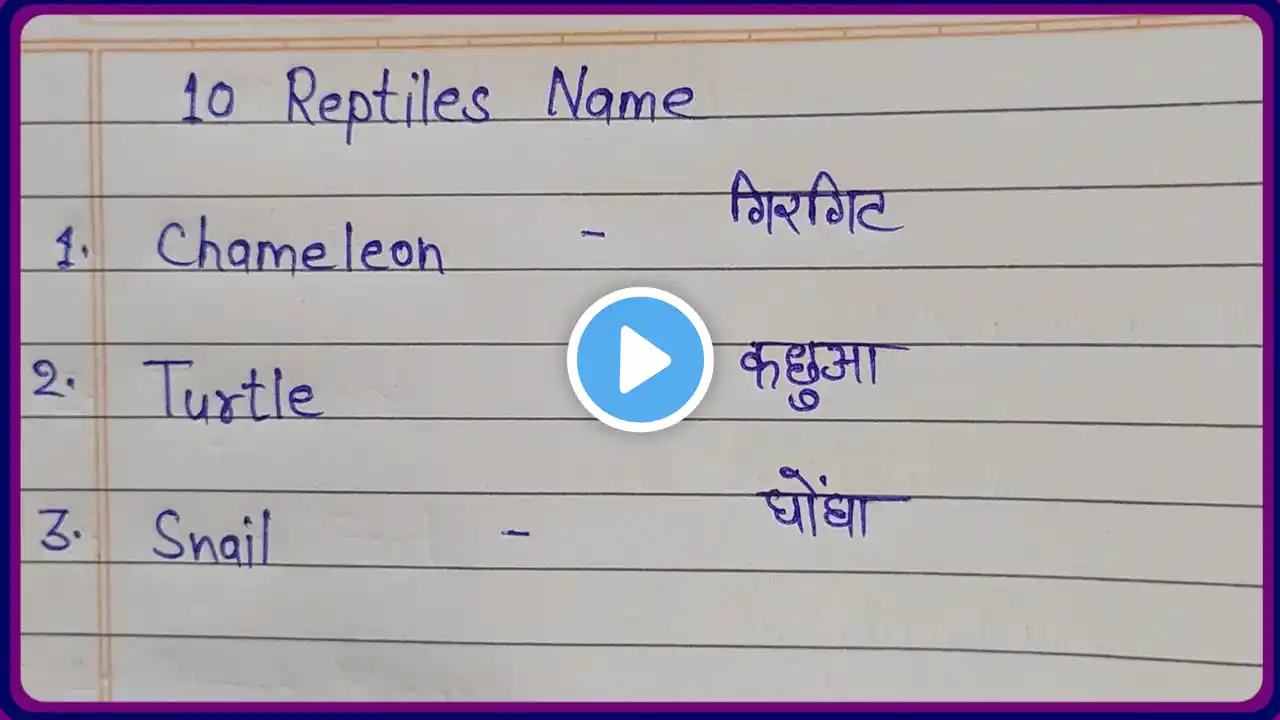 10 Reptiles Name
1. Chameleon - गिरगिट
2. Turtle कछुआ
3. Snail - घोंघा